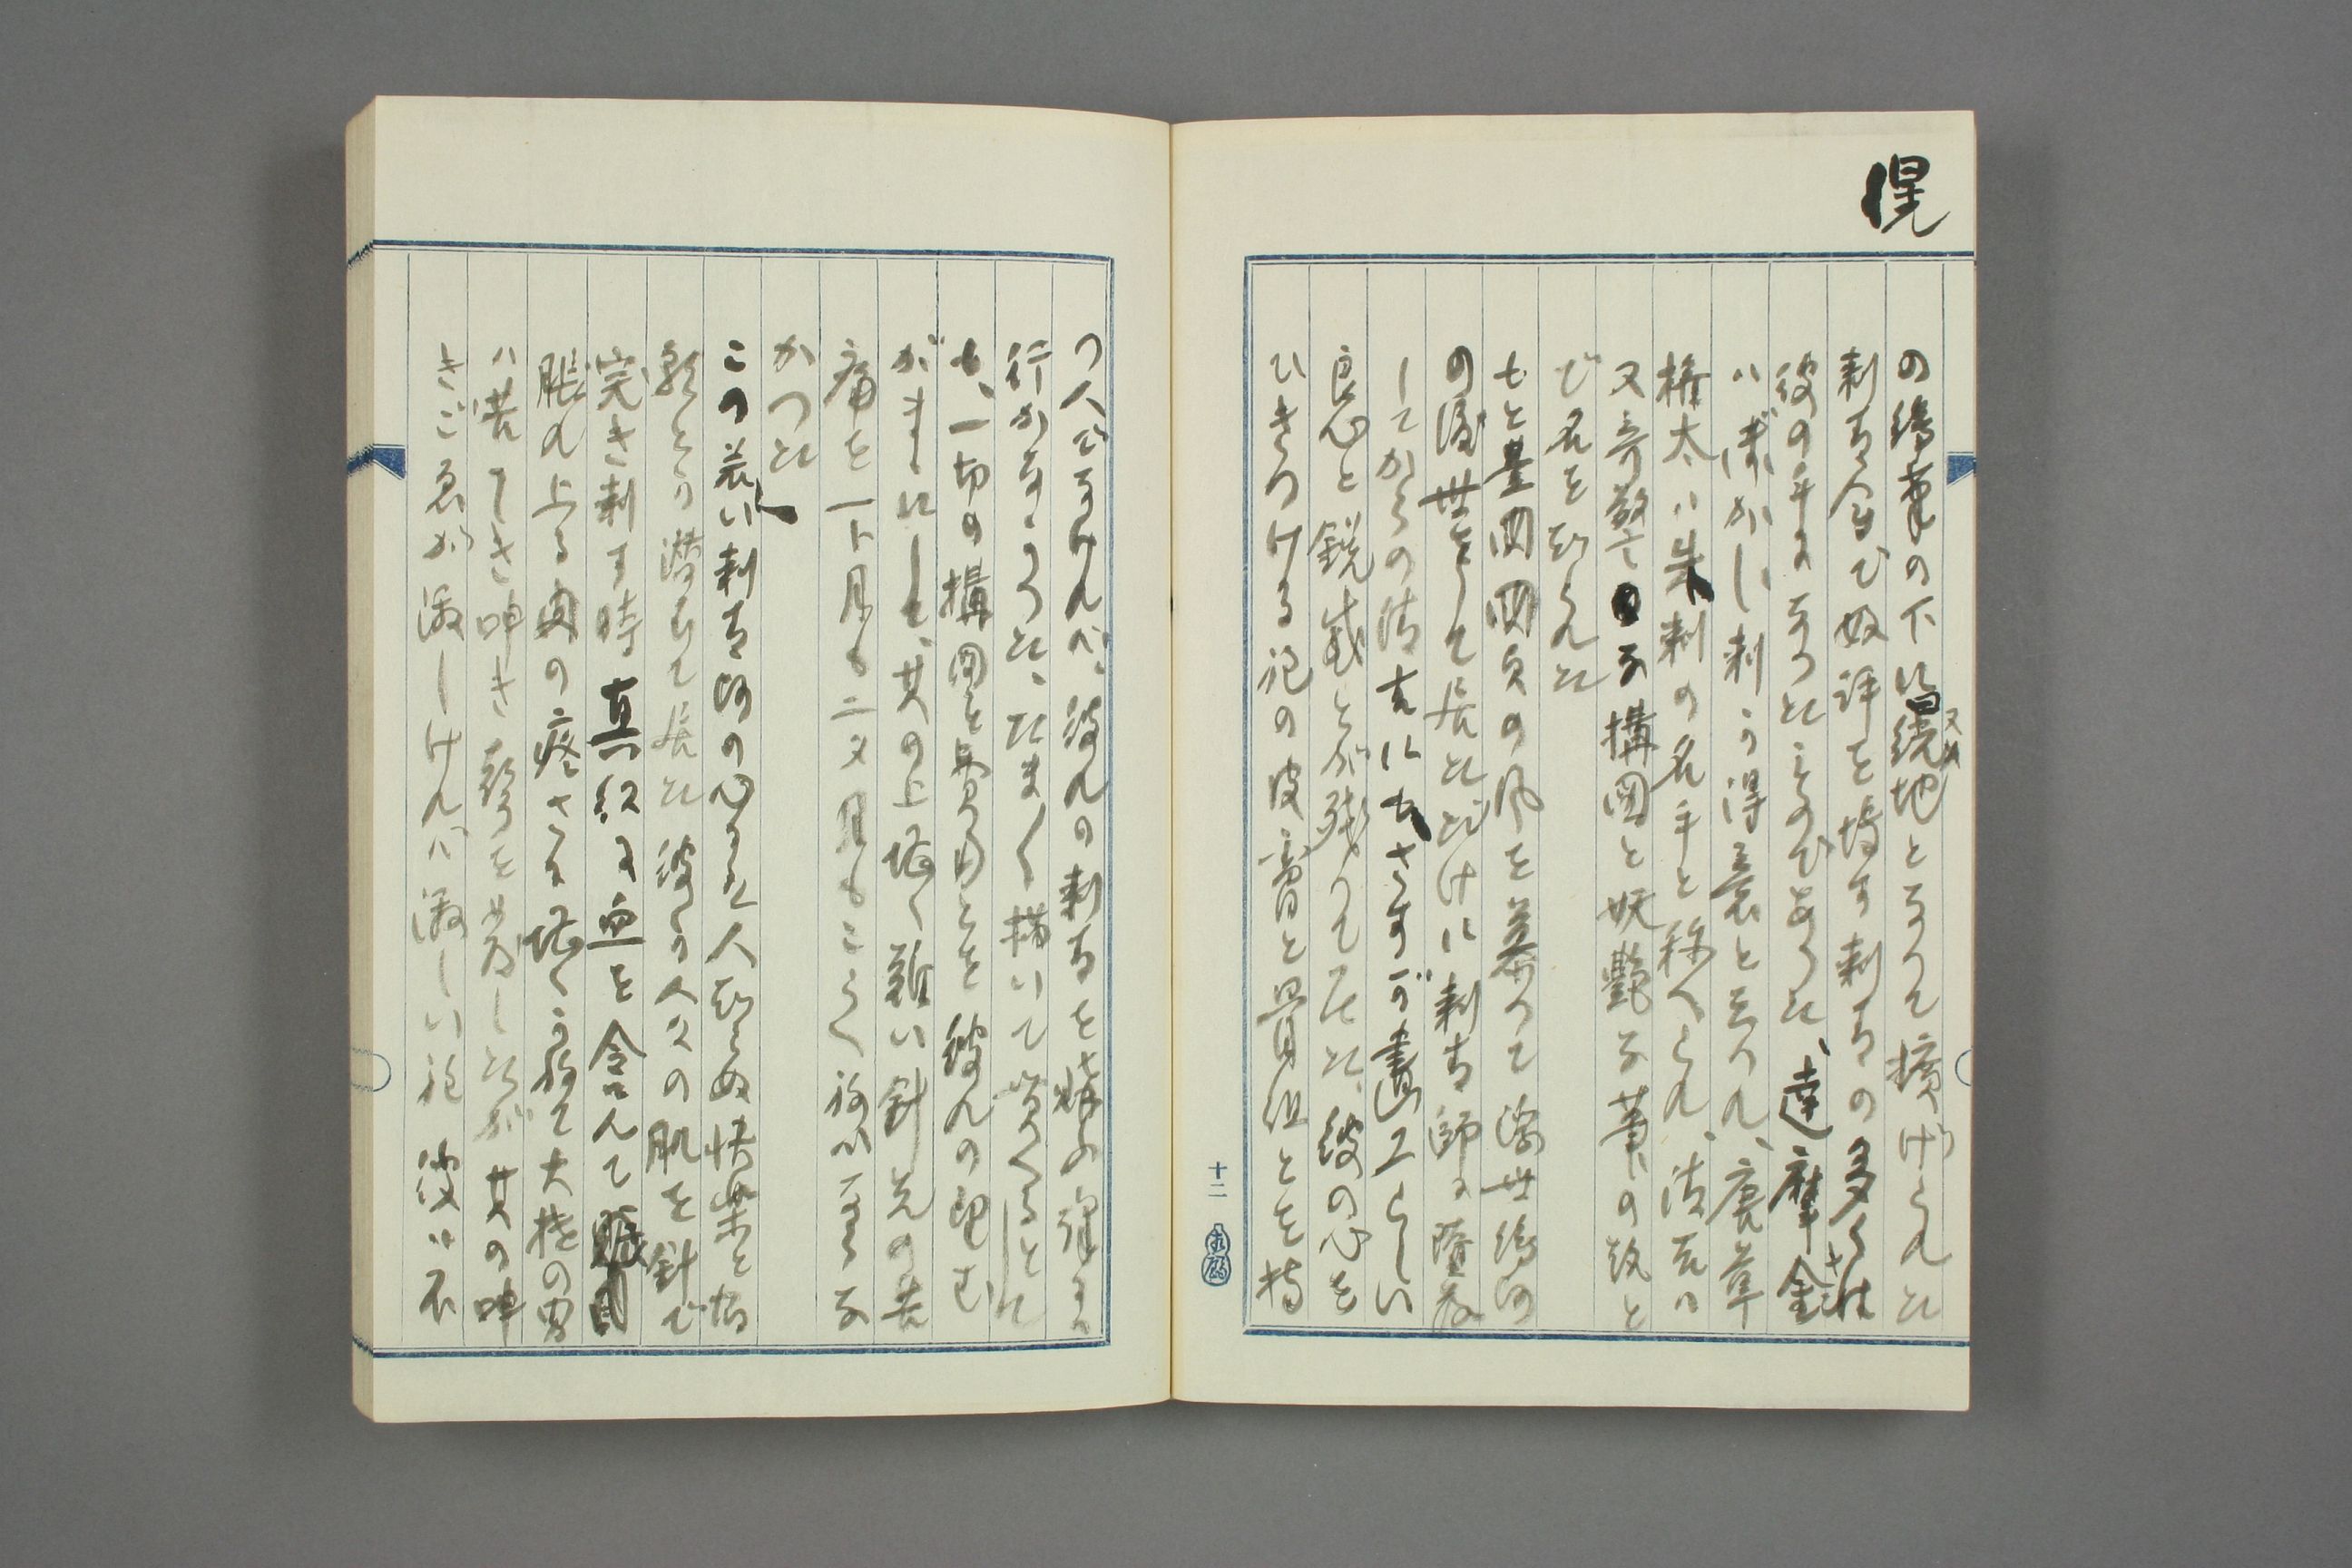 幌
の絵筆の下に絖地となつて擴げられた
又は
刺青会で好評を博す刺青の多くは
彼の手になつたものであつた、達摩金
ハぼかし刺り得意と云はれ、唐草
権太ハ朱刺の名手と称へられ、清吉ハ
又奇警な構図と妖艶な筆の技と
で名を知られた
もと豊国国貞の風を慕つて浮世絵師
の渡世をして居ただけに刺青師に墮落
してからの清吉にもさすが畫工らしい
良心と鋭感とが残つて居た、彼の心を
ひきつける程の皮膚と骨組とを持
十二
つ人でなければ、彼れの刺青を購ふ訳には
行かなかつた、たまく描いて貰へるとして
も、一切の構図と費用とを彼れの望む
がまゝにして、其の上堪へ難い針先の苦
痛を一ト月も二タ月もこらへねばならな
かつた
この若い刺青師の心には人知らぬ快楽と宿
願とが潜むで居た 彼が人々の肌を針で
突き刺す時 真紅に血を含んで
脹れ上る肉の疼きに堪へかねて大抵の男
ハ苦しき呻き聲を発したが 其の呻
きごゑが激しければ激しい程 彼ハ不